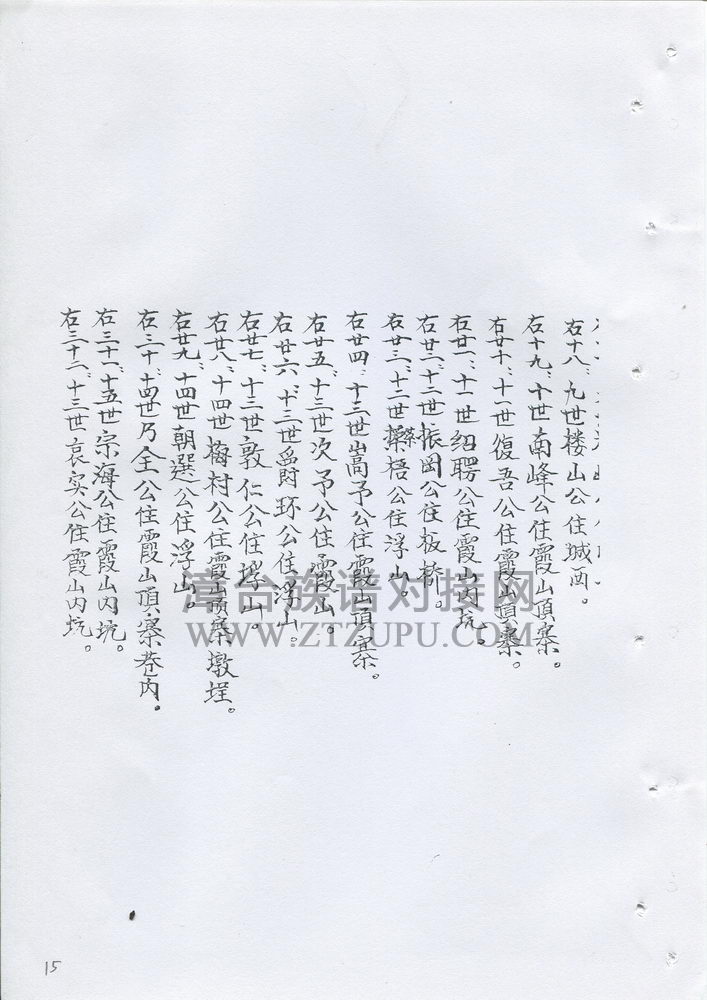 右十八、九世楼山公住城西。
右十九、十世南峰公住霞山頂寨。
右廿十、十一世復吾公住霞山頂寨。
右廿一、十一世绍聘公住霞山内坑。
右廿二、十二世振岡公住板桥。
右廿三、十二世梧公住浮山。
右廿四、十三世嵩予公住霞山頂寨。
右廿五、十三世次予公住霞山。
右廿六、十三世爵环公住浮山。
右廿七、十三世敦仁公住浮山。
右廿八、十四世梅村公住霞山顶寨墩埕。
右廿九、十四世朝選公住浮山。
右三十、十四世乃全公住霞山頂寨巷内.
右三十一、十五世宗海公住霞山内坑。
右三十二、十三世哀实公住霞山内坑。
漳台族谱对接网
WWW.ZTZUPU.COM
15